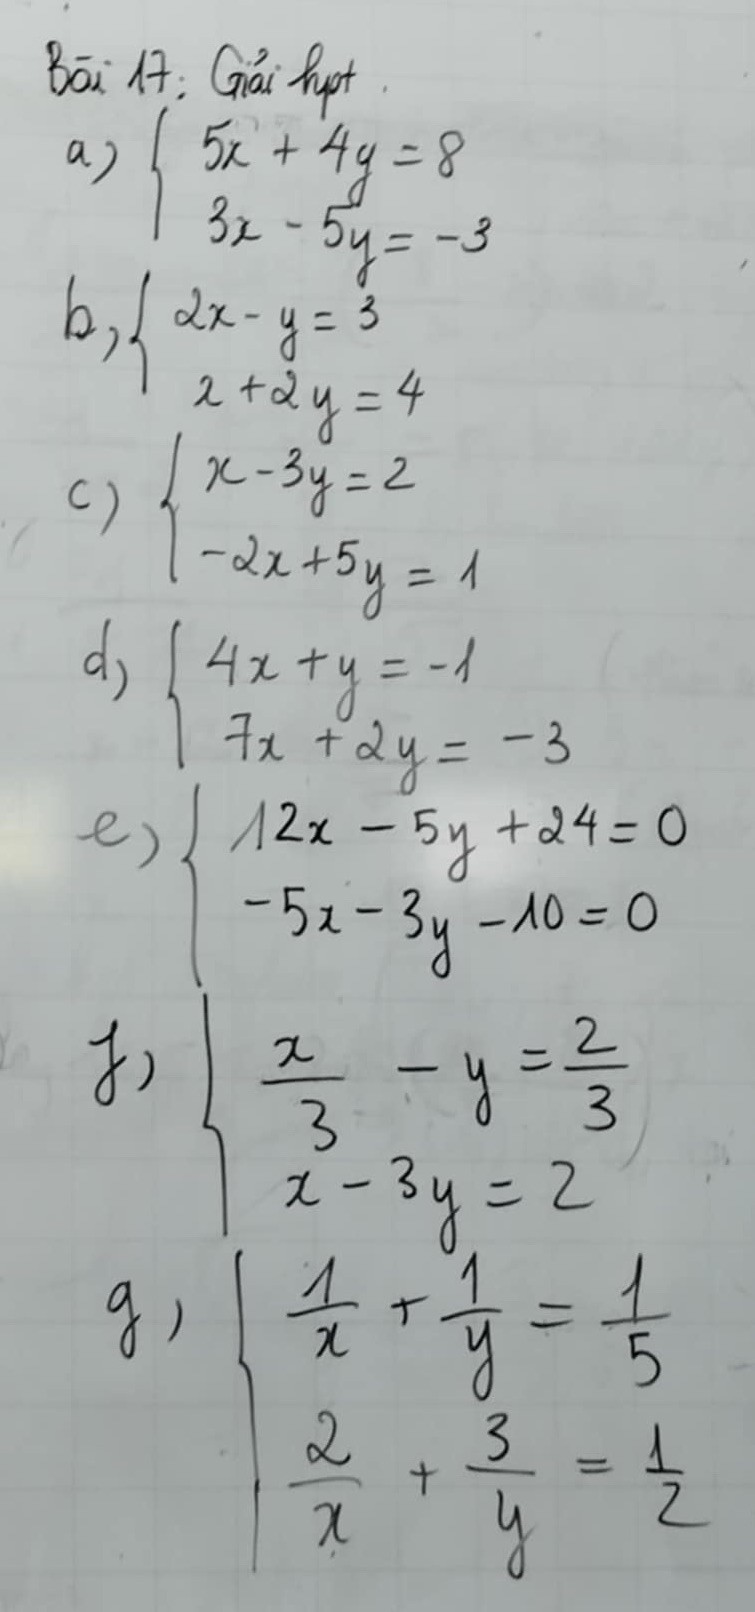 Bài 17: Giải hpt.
a) { 5x + 4y = 8
3x - 5y = -3
b, { 2x - y = 3
x + 2y = 4
c) { x - 3y = 2
-2x + 5y = 1
d, { 4x + y = -1
7x + 2y = -3
e) { 12x - 5y + 24 = 0
-5x - 3y - 10 = 0
f, { x/3 - y = 2/3
x - 3y = 2
g, { 1/x + 1/y = 1/5
2/x + 3/y = 1/2